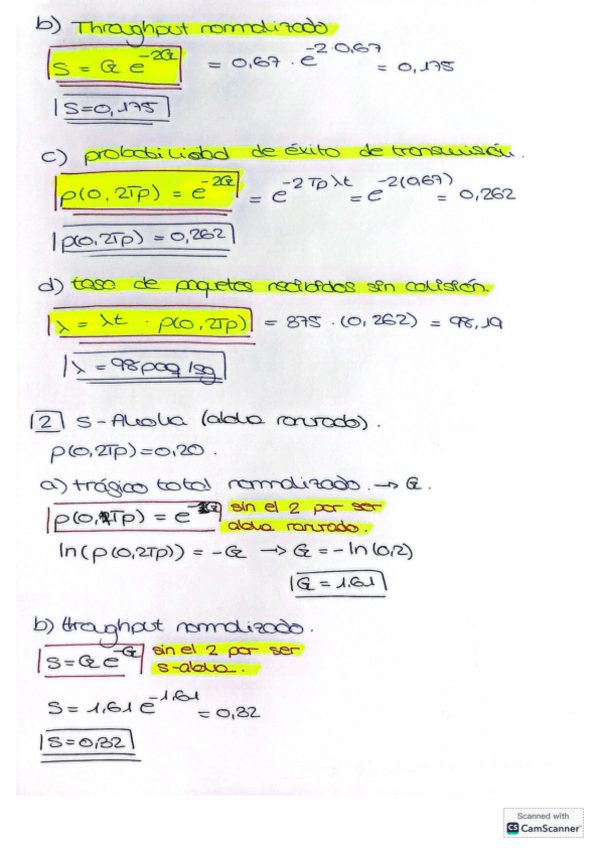 b) Throughput normalizado
S = G e^-2G = 0,67 · e^-2·0,67 = 0,175
S=0,175
c) probabilidad de éxito de transmisión.
p(0, 2Tp) = e^-2G = e^-2Tpλt = e^-2(0,67) = 0,262
p(0,2Tp) = 0,262
d) tasa de paquetes recibidos sin colisión.
λ = λt · p(0, 2Tp) = 375 · (0,262) = 98,19
λ = 98 paq/sg
2 S-Aloha (aloha ranurado).
p(0,2Tp)=0,20.
a) trágico total normalizado. → G.
p(0, Tp) = e^-G sin el 2 por ser
aloha ranurado.
ln(p(0,2Tp)) = -G → G = -ln(0,2)
G = 1,61
b) throughput normalizado.
S = G e^-G sin el 2 por ser
s-aloha.
S = 1,61 e^-1,61 = 0,32
S = 0,32
Scanned with
CS CamScanner